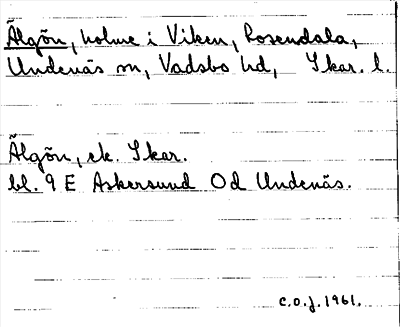 Älgön, holme i Viken, Rosendala,
Undenäs sn, Vadsbo hd, Skar. l.
Älgön, ek. Skar.
bl. 9 E Askersund Od Undenäs.
C.O.J. 1961.